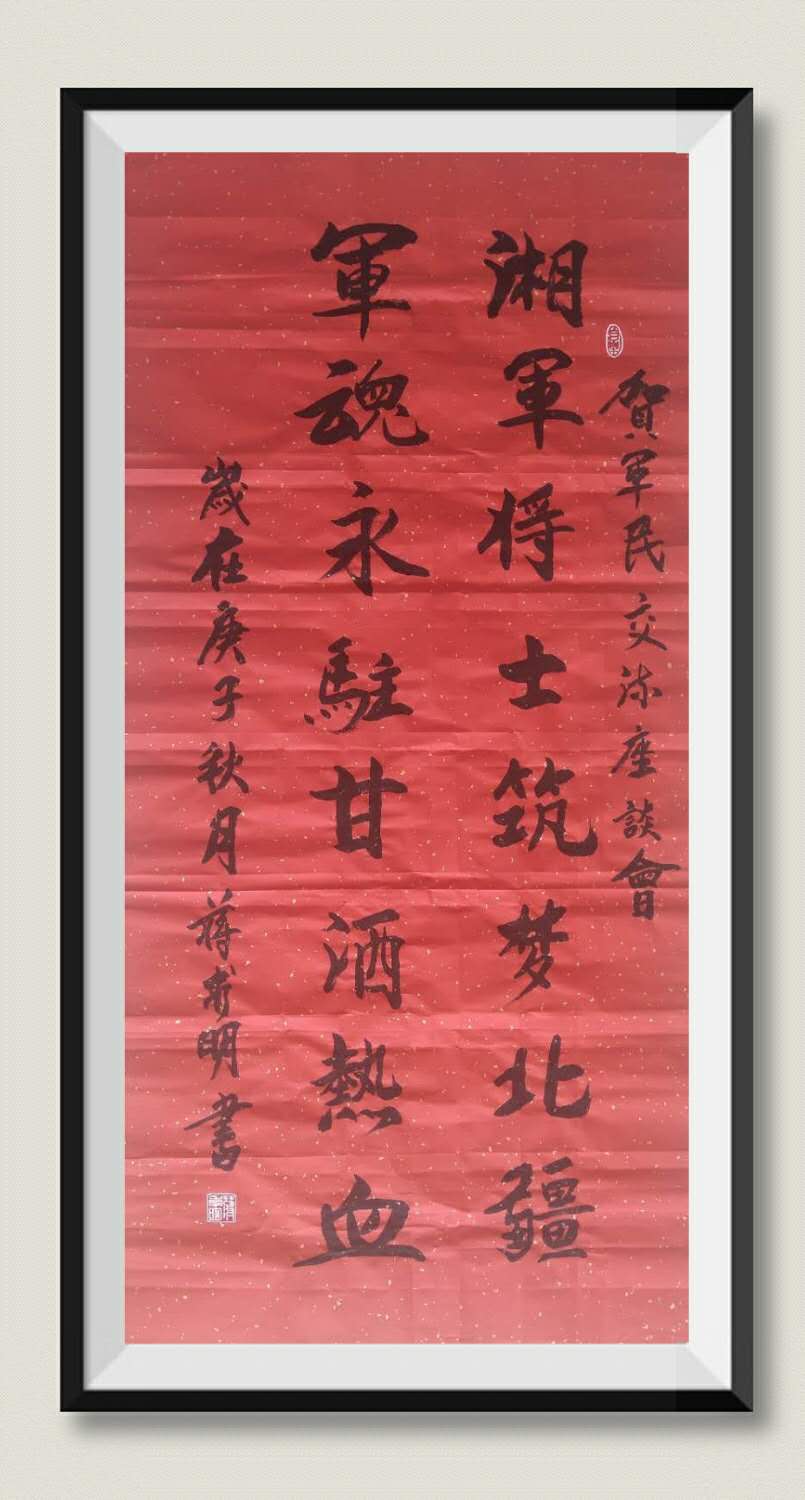 賀军民交流座談會
湘軍将士筑梦北疆
軍魂永駐甘洒熱血
歲在庚子秋月蒋秀明書